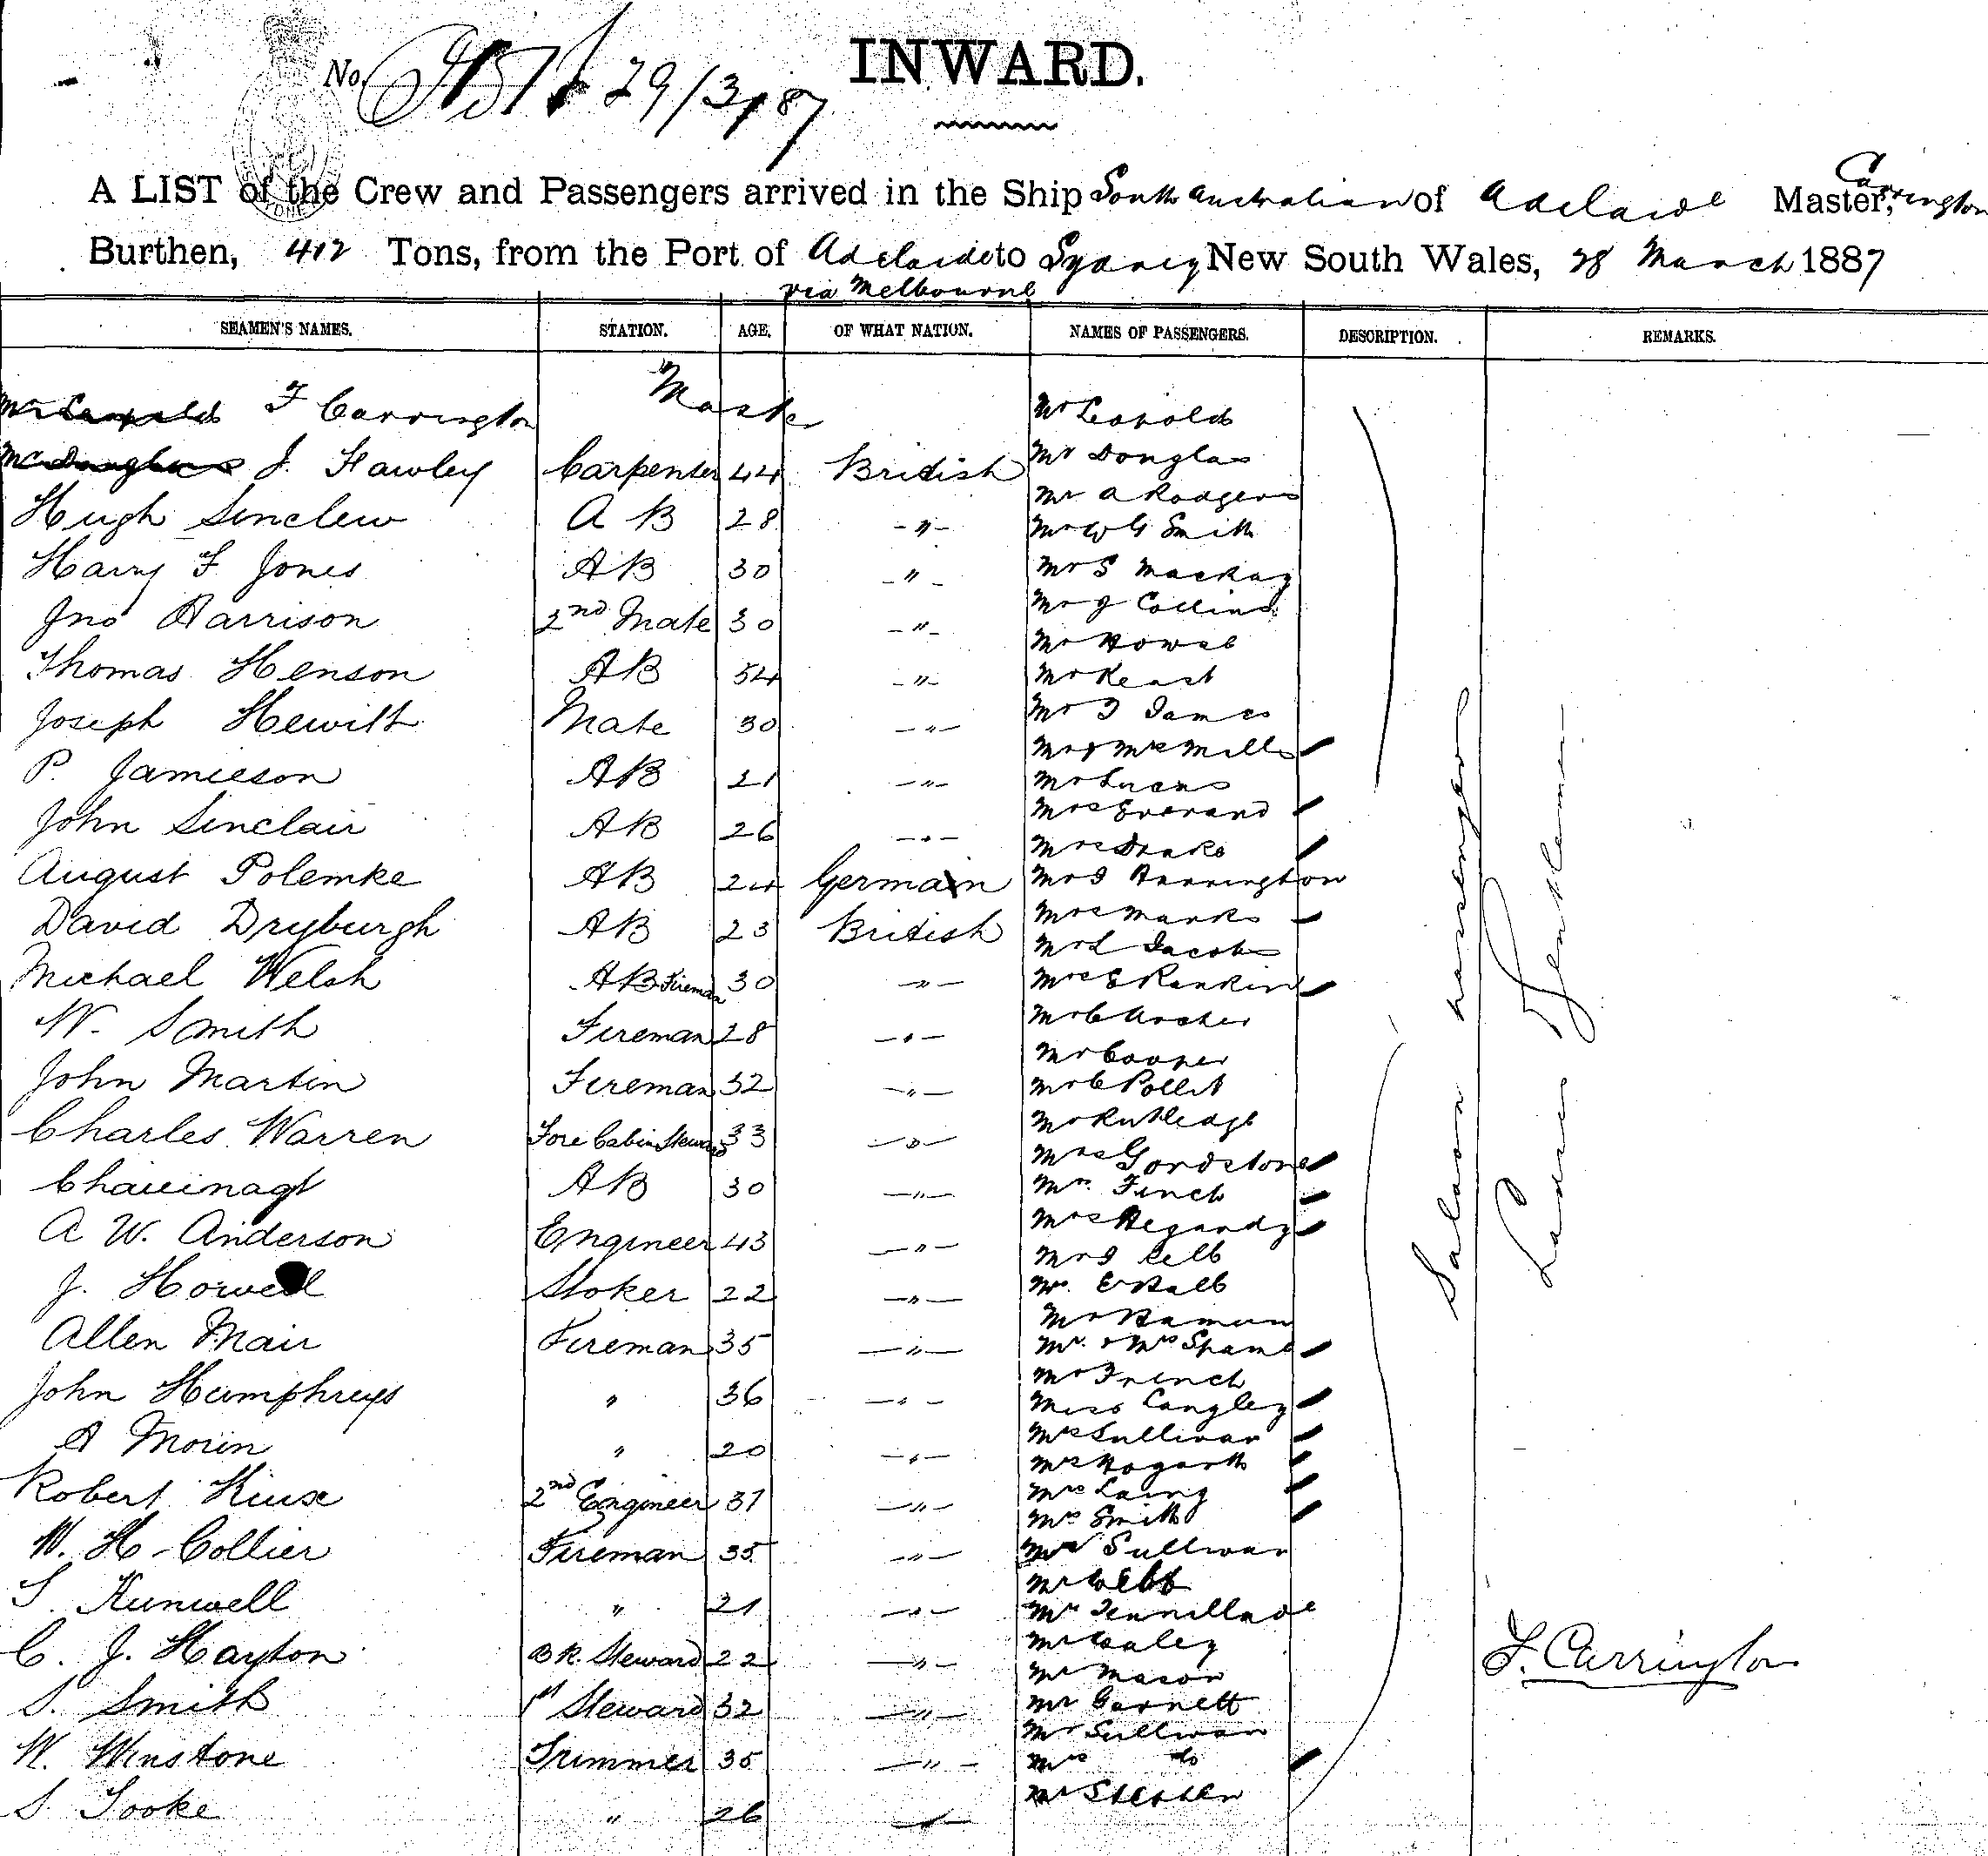 No. 29/3/87
INWARD.
A LIST of the Crew and Passengers arrived in the Ship South Australian of Adelaide Master, Carrington
Burthen, 412 Tons, from the Port of Adelaide to Sydney New South Wales, 28 March 1887
via Melbourne
SEAMEN'S NAMES. STATION. AGE. OF WHAT NATION. NAMES OF PASSENGERS. DESCRIPTION. REMARKS.
F Carrington Master Mr Leopold
J. Hawley Carpenter 44 British Mr Douglas
Mr A Rodgers
Hugh Sinclew A B 28 -"- Mr W G Smith
Harry F Jones AB 30 -"- Mr S Mackay
Mr J Collins
Jno Harrison 2nd Mate 30 -"- Mr Howel
Thomas Henson AB 54 -"- Mr Keast
Joseph Hewitt Mate 30 -"- Mr T James
Mr & Mrs Mills
P. Jamieson AB 21 -"- Mr Lucas
John Sinclair AB 26 -"- Mrs Everard
Mrs Drake
August Polemke AB 24 German Mr J Harrington
David Dryburgh AB 23 British Mrs Marks
Mr L Jacobs
Michael Welsh AB Fireman 30 -"- Mrs E Rankin
W. Smith Fireman 28 -"- Mr C Archer
Mr Cooper
John Martin Fireman 32 -"- Mr C Pollit
Charles Warren Fore Cabin Steward 33 -"- Mr Rutledge
Mrs Gordstone
AB 30 -"- Mr. Finch
A W. Anderson Engineer 43 -"- Mrs Hegardy
J. Howell Stoker 22 -"- Mr E Ball
Mr Haman
Allen Mair Fireman 35 -"- Mr. & Mrs
Mr French
John Humphreys " 36 -"- Miss Langley
A Morin " 20 -"- Mrs Sullivan
Mrs Hogarth
Robert 2nd Engineer 37 -"- Mrs Laing
Mrs Smith
W. H. Collier Fireman 35 -"- Mr Sullivan
Mr Webb
S. Kunwell " 21 -"- Mr
C. J. Hayton B R. Steward 22 -"- Mr Caley
Mr Mason
S. Smith 1st Steward 32 -"- Mr Garnett
Mr Sullivan
W. Winstone Trimmer 35 -"- Mrs Do
S. Tooke " 26 -"- Mr Stephen
Saloon passengers
F. Carrington